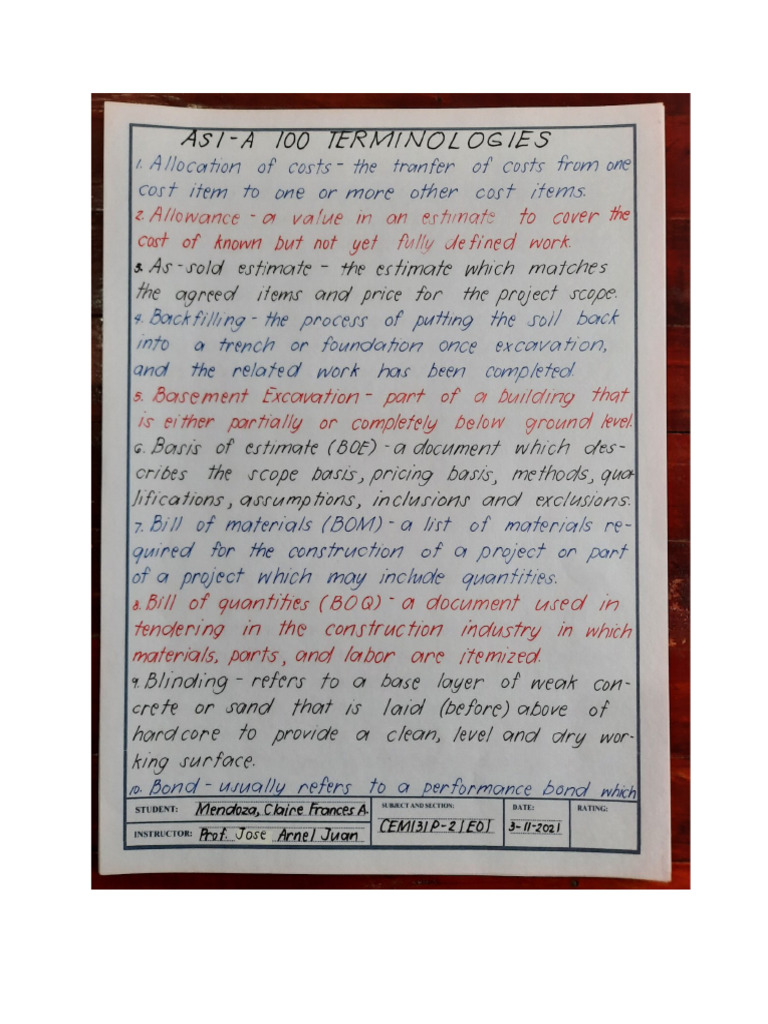 AS1-A 100 TERMINOLOGIES
1. Allocation of costs - the tranfer of costs from one
cost item to one or more other cost items.
2. Allowance - a value in an estimate to cover the
cost of known but not yet fully defined work.
3. As-sold estimate - the estimate which matches
the agreed items and price for the project scope.
4. Backfilling - the process of putting the soil back
into a trench or foundation once excavation,
and the related work has been completed.
5. Basement Excavation - part of a building that
is either partially or completely below ground level.
6. Basis of estimate (BOE) - a document which des-
cribes the scope basis, pricing basis, methods, qua-
lifications, assumptions, inclusions and exclusions.
7. Bill of materials (BOM) - a list of materials re-
quired for the construction of a project or part
of a project which may include quantities.
8. Bill of quantities (BOQ) - a document used in
tendering in the construction industry in which
materials, parts, and labor are itemized.
9. Blinding - refers to a base layer of weak con-
crete or sand that is laid (before) above of
hardcore to provide a clean, level and dry wor-
king surface.
10. Bond - usually refers to a performance bond which
STUDENT: Mendoza, Claire Frances A.
INSTRUCTOR: Prof. Jose Arnel Juan
SUBJECT AND SECTION:
CEM131P-2|E01
DATE:
3-11-2021
RATING: